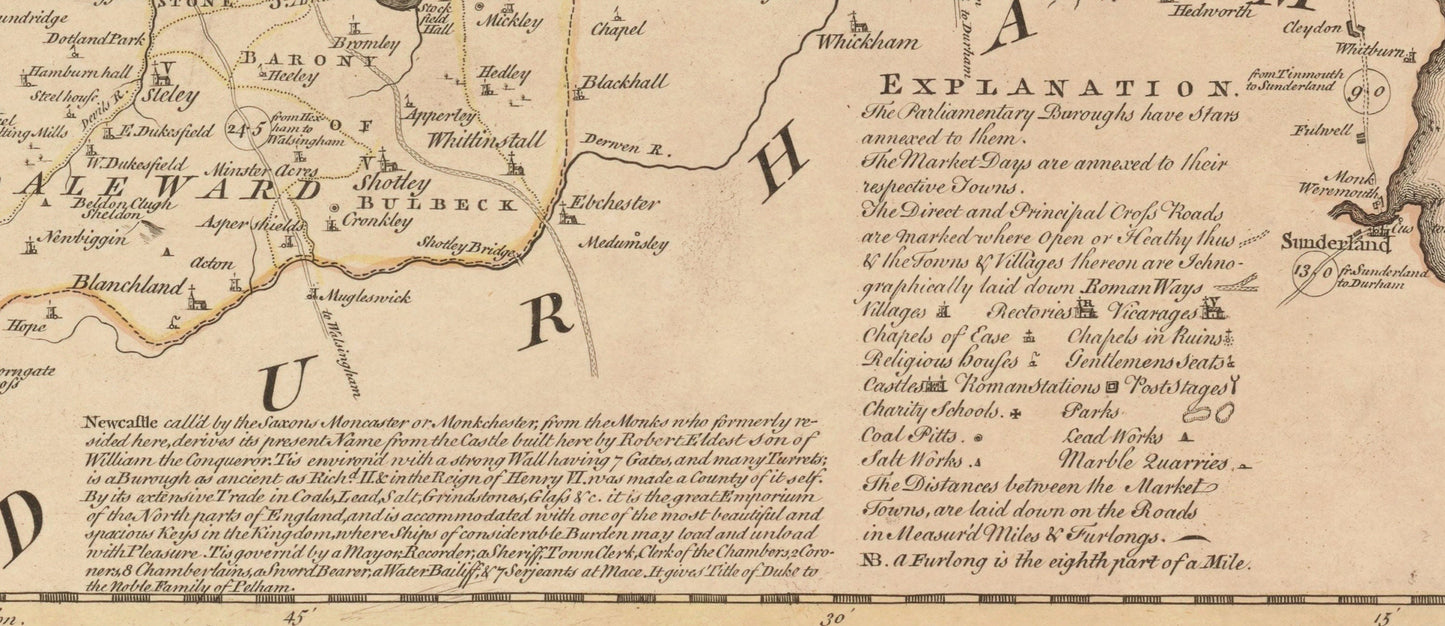 STONE
undridge
Dotland Park
Hamburn hall
Steel house
lting Mills
Devils R.
V
Sleley
E. Dukesfield
W. Dukesfield
Beldon Clugh
Sheldon
Newbiggin
Blanchland
Acton
Hope
orngate
Bromley
BARONY
Heeley
OF
BULBECK
24 · 5
from Hex
ham to
Walsingham
Minster Acres
ALE WARD
Asper shields
V
Shotley
Cronkley
Shotley Bridge
Mugleswick
to Walsingham
Stock
field
Hall
Mickley
Hedley
Apperley
Whittinstall
Chapel
Blackhall
Derwen R.
Ebchester
Medumsley
Whickham
to Durham
Hedworth
A
M
H
R
U
D
Cleydon
Whitburn
from Tinmouth
to Sunderland
9 0
Fulwell
Monk
Weremouth
Sunderland
13 · 0
fr. Sunderland
to Durham
EXPLANATION.
The Parliamentary Buroughs have Stars
annexed to them.
The Market Days are annexed to their
respective Towns.
The Direct and Principal Croſs Roads
are marked where Open or Heathy thus
& the Towns & Villages thereon are Ichno-
graphically laid down Roman Ways
Villages Rectories R Vicarages V
Chapels of Ease Chapels in Ruins
Religious houſes Gentlemens Seats
Castles Roman Stations Post Stages
Charity Schools. Parks
Coal Pitts. Lead Works
Salt Works. Marble Quarries
The Distances between the Market
Towns, are laid down on the Roads
in Measur'd Miles & Furlongs.
NB. a Furlong is the eighth part of a Mile.
Newcaſtle call'd by the Saxons Moncaster or Monkchester, from the Monks who formerly re-
sided here, derives its present Name from the Castle built here by Robert Eldest Son of
William the Conqueror. Tis environ'd with a strong Wall having 7 Gates, and many Turrets;
is a Burough as ancient as Rich.d II & in the Reign of Henry VI. was made a County of it self.
By its extensive Trade in Coals, Lead, Salt, Grindstones, Glaſs &c. it is the great Emporium
of the North parts of England, and is accommodated with one of the most beautiful and
spacious Keys in the Kingdom, where Ships of considerable Burden may load and unload
with Pleasure. Tis govern'd by a Mayor, Recorder, a Sheriff, Town Clerk, Clerk of the Chambers, 2 Coro-
ners, 8 Chamberlains, a Sword Bearer, a Water Bailiff, & 7 Serjeants at Mace. It gives Title of Duke to
the Noble Family of Pelham.
45'
30'
15'